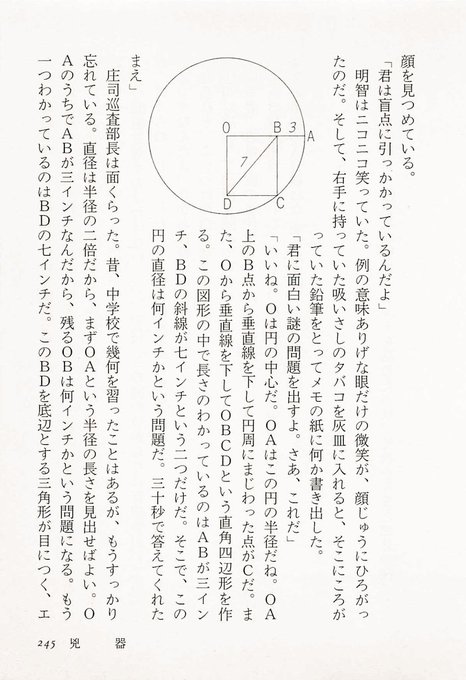 顔を見つめている。
「君は盲点に引っかかっているんだよ」
明智はニコニコ笑っていた。例の意味ありげな眼だけの微笑が、顔じゅうにひろがっ
たのだ。そして、右手に持っていた吸いさしのタバコを灰皿に入れると、そこにころが
っていた鉛筆をとってメモの紙に何か書き出した。
「君に面白い謎の問題を出すよ。さあ、これだ」
「いいね。Oは円の中心だ。OAはこの円の半径だね。OA
上のB点から垂直線を下して円周にまじわった点がCだ。ま
た、Oから垂直線を下してOBCDという直角四辺形を作
る。この図形の中で長さのわかっているのはABが三イン
チ、BDの斜線が七インチという二つだけだ。そこで、この
円の直径は何インチかという問題だ。三十秒で答えてくれた
O
B
3
A
7
D
C
まえ」
庄司巡査部長は面くらった。昔、中学校で幾何を習ったことはあるが、もうすっかり
忘れている。直径は半径の二倍だから、まずOAという半径の長さを見出せばよい。O
AのうちでABが三インチなんだから、残るOBは何インチかという問題になる。もう
一つわかっているのはBDの七インチだ。このBDを底辺とする三角形が目につく、エ
245 兇器